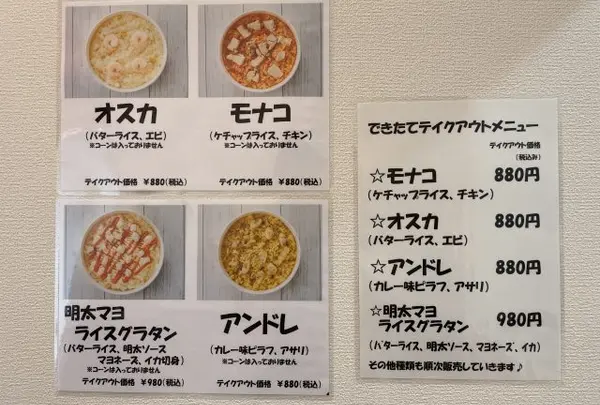 オスカ
(バターライス、エビ)
※コーンは入っておりません
テイクアウト価格 ¥880(税込)
モナコ
(ケチャップライス、チキン)
※コーンは入っておりません
テイクアウト価格 ¥880(税込)
明太マヨ
ライスグラタン
(バターライス、明太ソース
マヨネーズ、イカ切身)
※コーンは入っておりません
テイクアウト価格 ¥980(税込)
アンドレ
(カレー味ピラフ、アサリ)
※コーンは入っておりません
テイクアウト価格 ¥880(税込)
できたてテイクアウトメニュー
テイクアウト価格
(税込み)
☆モナコ 880円
(ケチャップライス、チキン)
☆オスカ 880円
(バターライス、エビ)
☆アンドレ 880円
(カレー味ピラフ、アサリ)
☆明太マヨ
ライスグラタン 980円
(バターライス、明太ソース、マヨネーズ、イカ)
その他種類も順次販売していきます♪